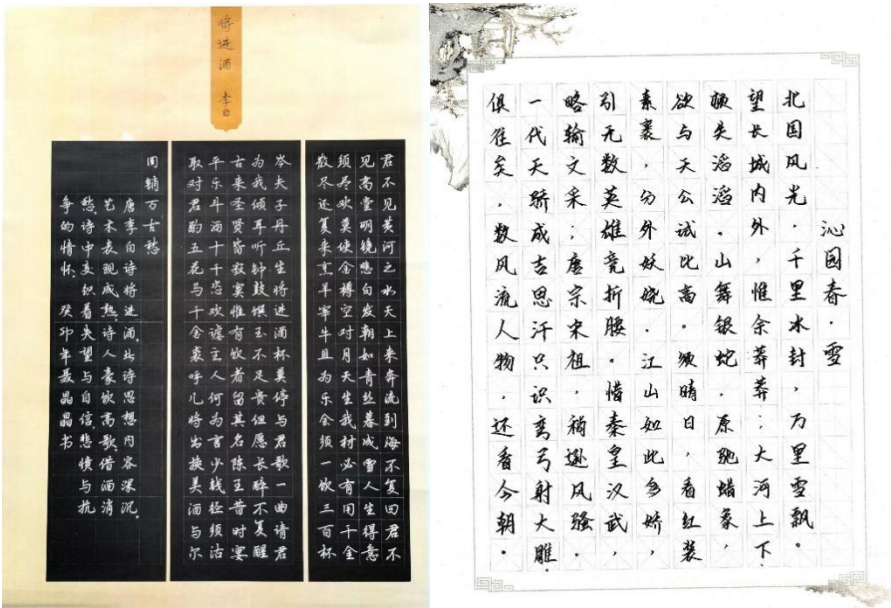 将进酒 李白
君不见黄河之水天上来奔流到海不复回君不
见高堂明镜悲白发朝如青丝暮成雪人生得意
须尽欢莫使金樽空对月天生我材必有用千金
散尽还复来烹羊宰牛且为乐会须一饮三百杯
岑夫子丹丘生将进酒杯莫停与君歌一曲请君
为我倾耳听钟鼓馔玉不足贵但愿长醉不复醒
古来圣贤皆寂寞惟有饮者留其名陈王昔时宴
平乐斗酒十千恣欢谑主人何为言少钱径须沽
取对君酌五花马千金裘呼儿将出换美酒与尔
同销万古愁
唐李白诗将进酒。此诗思想内容深沉。
艺术表现成熟。诗人豪饮高歌。借酒消
愁。诗中交织着失望与自信悲愤与抗
争的情怀。癸卯年聂晶晶书
沁园春·雪
北国风光，千里冰封，万里雪飘。
望长城内外，惟余莽莽；大河上下，
顿失滔滔。山舞银蛇，原驰蜡象，
欲与天公试比高。须晴日，看红装
素裹，分外妖娆。江山如此多娇，
引无数英雄竞折腰。惜秦皇汉武，
略输文采；唐宗宋祖，稍逊风骚。
一代天骄成吉思汗只识弯弓射大雕。
俱往矣，数风流人物，还看今朝。